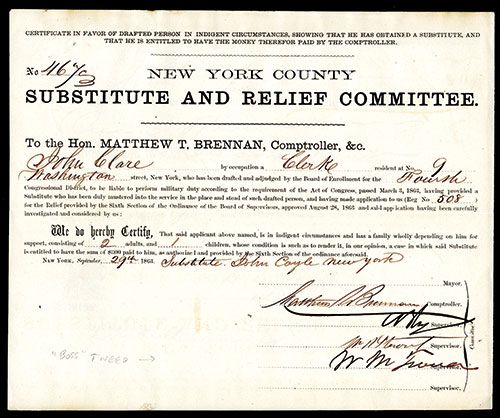 CERTIFICATE IN FAVOR OF DRAFTED PERSON IN INDIGENT CIRCUMSTANCES, SHOWING THAT HE HAS OBTAINED A SUBSTITUTE, AND
THAT HE IS ENTITLED TO HAVE THE MONEY THEREFOR PAID BY THE COMPTROLLER.
No
NEW YORK COUNTY
SUBSTITUTE AND RELIEF COMMITTEE.
To the Hon. MATTHEW T. BRENNAN, Comptroller, &c.
John Clare by occupation a Clerk resident at No. 9
Washington street, New York, who has been drafted and adjudged by the Board of Enrollment for the Fourth
Congressional District, to be liable to perform military duty according to the requirement of the Act of Congress, passed March 3, 1863, having provided a
Substitute who has been duly mustered into the service in the place and stead of such drafted person, and having made application to us (Reg No 508)
for the Relief provided by the Sixth Section of the Ordinance of the Board of Supervisors, approved August 28, 1863 and said application having been carefully
investigated and considered by us:
We do hereby Certify, That said applicant above named, is in indigent circumstances and has a family wholly depending on him for
support, consisting of 2 adults, and 1 children, whose condition is such as to render it, in our opinion, a case in which said Substitute
is entitled to have the sum of $300 paid to him, as authorized and provided by the Sixth Section of the ordinance aforesaid.
New York, September 29th 1863. Substitute. John Coyle New York
Mayor.
Matthew T. Brennan Comptroller.
Supervisor.
Supervisor.
Wm M Tweed Supervisor.
Committee
"BOSS" TWEED →